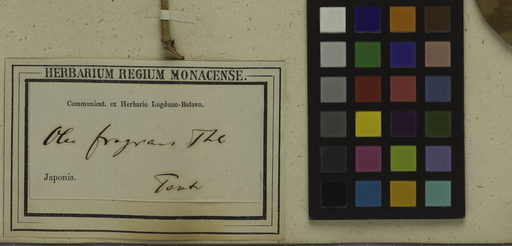 HERBARIUM REGIUM MONACENSE.
Communicat. ex Herbario Lugduno-Batavo.
Olea fragrans Thb
Japonia.